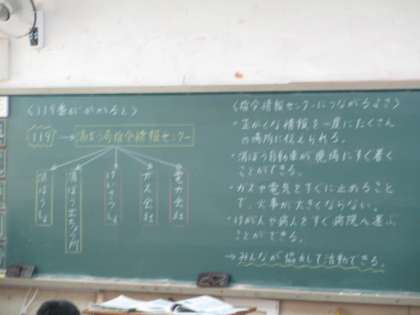 〈119番がかかると〉
119 → 消ぼう局指令情報センター
消ぼうしょ
消ぼう出ちょう所
けいさつしょ
ガス会社
電力会社
〈指令情報センターにつながるよさ〉
・正かくな情報を一度にたくさん
の場所に伝えられる。
・消ぼう自動車が現場にすぐ着く
ことができる。
・ガスや電気をすぐに止めること
で、火事が大きくならない。
・けが人や病人をすぐ病院へ運ぶ
ことができる。
→みんなが協力して活動できる。